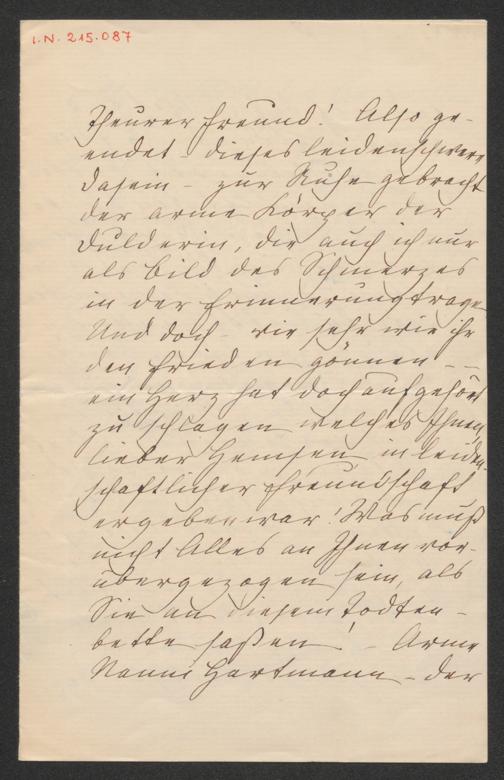 I.N. 215.087
Theurer Freund! Also ge-
endet – dieses leidenschwere
Dasein – zur Ruhe gebracht
der arme Körper der
Dulderin, die auch ich nur
als Bild des Schmerzes
in der Erinnerung trage
Und doch – wie sehr wir ihr
den Frieden gönnen – –
ein Herz hat doch aufgehört
zu schlagen welches Ihnen
lieber Hemsen in leiden-
schaftlicher Freundschaft
ergeben war! Was muß
nicht Alles an Ihnen vor-
übergezogen sein, als
Sie an diesem Todten-
bette saßen! – Arme
Nanni Hartmann – der